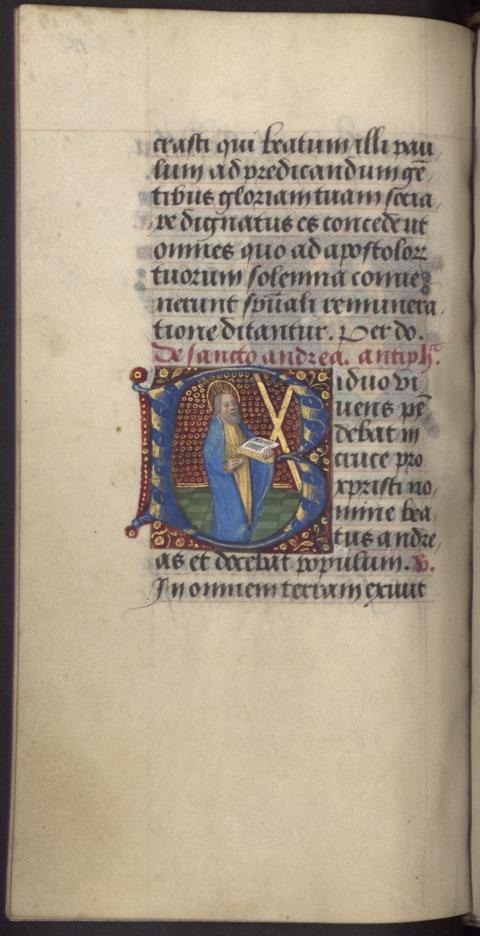 crasti qui beatum illi pau
lum ad predicandum gē
tibus gloriam tuam socia
re dignatus es concede ut
omnes quo ad apostolorꝝ
tuorum solemnia conue
nerunt spūali remunera
tione ditantur. Per do.
De sancto andrea. antiph̄a.
Biduo vi
uens pē
debat in
cruce pro
xpristi no
mine bea
tus andre
as et docebat populum. ꝟ.
In omnem terram exiuit